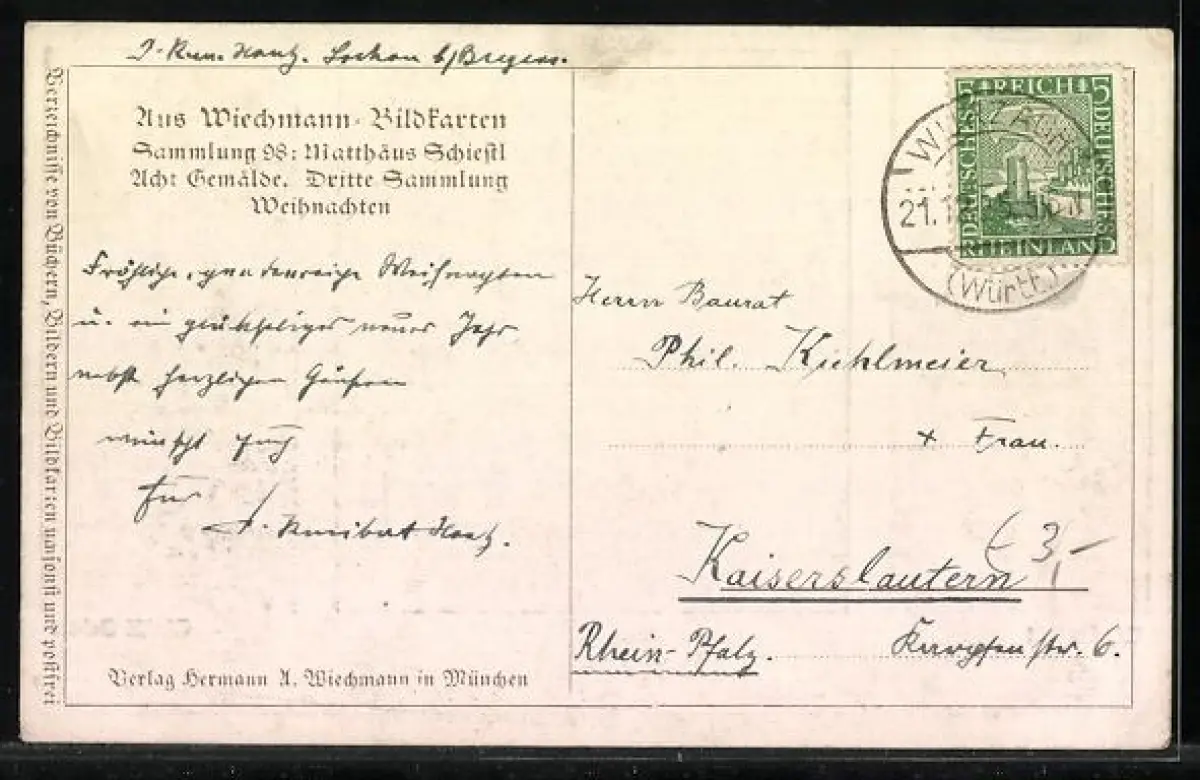 Lochau b/Bregenz.
Aus Wiechmann-Bildkarten
Sammlung 98: Matthäus Schiestl
Acht Gemälde. Dritte Sammlung
Weihnachten
Fröhliche, gnadenreiche Weihnachten
u. ein glückseliges neues Jahr
nebst herzlichen Grüßen
wünscht Euch
Euer
Verlag Hermann A. Wiechmann in München
Verzeichnisse von Büchern, Bildern und Bildkarten umsonst und postfrei
5 REICH 5
DEUTSCHES
DEUTSCHES
RHEINLAND
21.
(Württ.)
Herrn Baurat
Phil. Kiehlmeier
+ Frau.
3,-
Kaiserslautern
Rhein-Pfalz. 6.